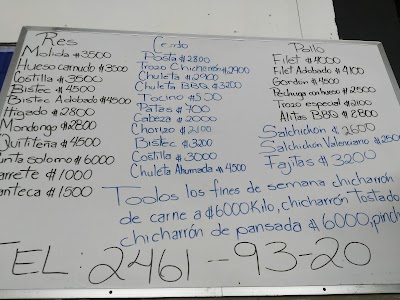 Res
Molida #3500
Hueso carnudo #3500
Costilla #3500
Bistec #4500
Bistec Adobado #4500
Higado #2800
Mondongo #2800
Quititeña #4500
unta solomo #6000
arrete #1000
anteca #1500
Cerdo
Posta #2800
Trozo Chicharrón #2900
Chuleta #2900
Chuleta BBQ #3200
Tocino #500
Patas #700
Cabeza #2000
Chorizo #2100
Bistec #3200
Costilla #3000
Chuleta Ahumada #4500
Pollo
Filet #4000
Filet Adobado #4100
Gordon #4500
Pechuga con hueso #2500
Trozo especial #2100
Alitas BBQ #2800
Salchichon #2600
Salchichon Valenciano #2500
Fajitas #3200
Todos los fines de semana chicharrón
de carne a #6000 Kilo, chicharrón Tostado
chicharrón de pansada #6000, pinch
TEL: 2461-93-20